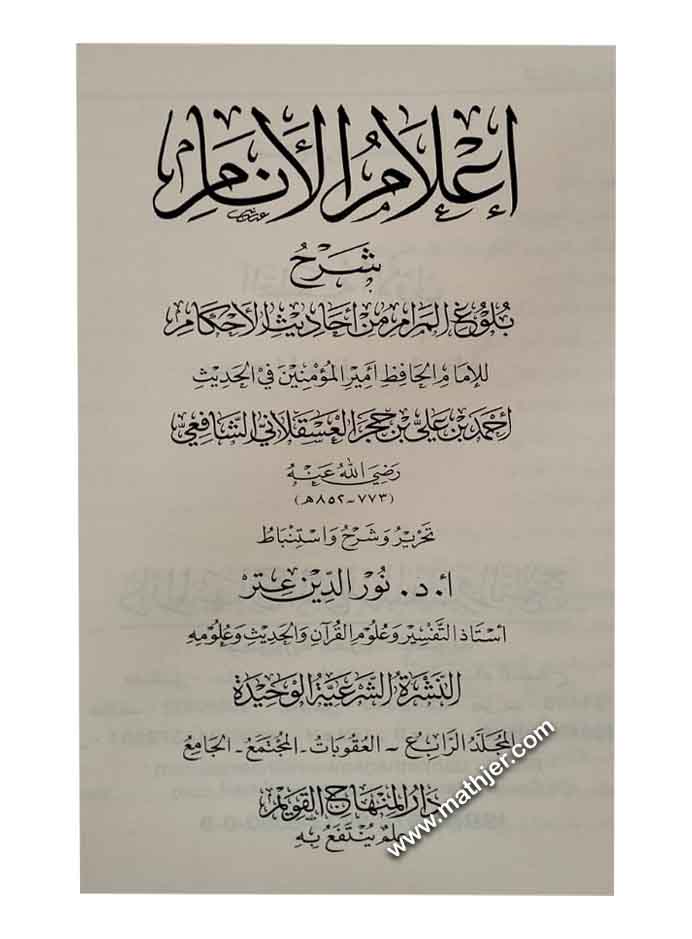 إعْلَامُ الأَنَامِ
شَرْحُ
بُلُوغِ المَرَامِ مِنْ أَحَادِيثِ الأَحْكَامِ
للإمَامِ الحَافِظِ أَمِيرِ المُؤْمِنِينَ فِي الحَدِيثِ
أَحْمَدَ بْنِ عَلِيِّ بْنِ حَجَرٍ العَسْقَلَانِيِّ الشَّافِعِيِّ
رَضِيَ اللهُ عَنْهُ
(٧٧٣-٨٥٢هـ)
تَحْرِيرُ وَشَرْحُ وَاسْتِنْبَاطُ
أ. د. نُورُ الدِّينِ عِتْر
أسْتَاذُ التَّفْسِيرِ وَعُلُومِ القُرْآنِ وَالحَدِيثِ وَعُلُومِهِ
النَّشْرَةُ الشَّرْعِيَّةُ الوَحِيدَةُ
المُجَلَّدُ الرَّابِعُ - العُقُوبَاتُ - المُجْتَمَعُ - الجَامِعُ
دَارُ المِنْهَاجِ القَوِيمِ
عِلْمٌ يُنْتَفَعُ بِهِ
www.mathjer.com